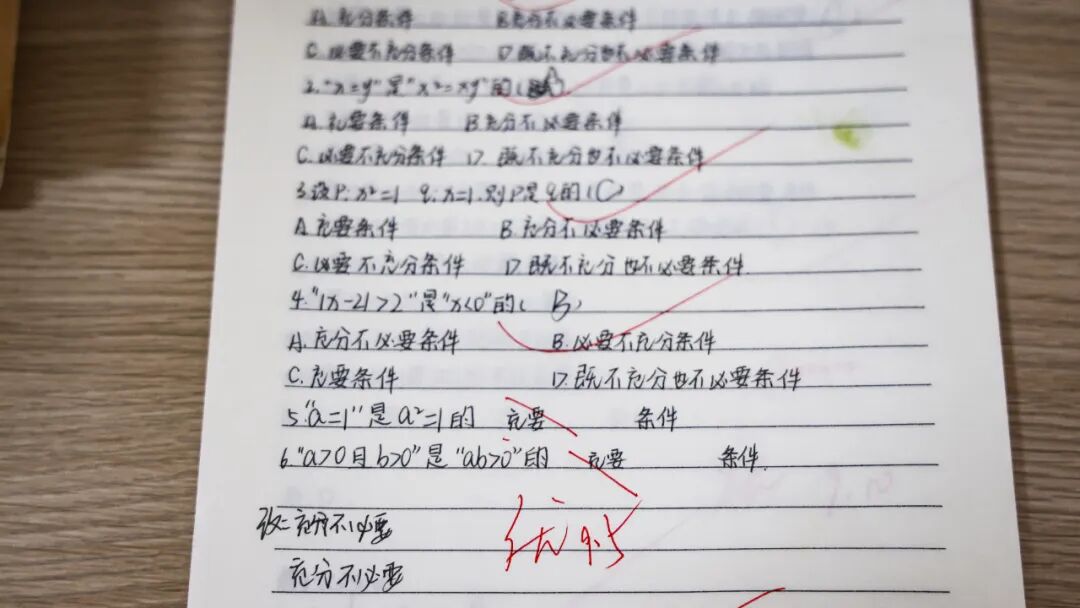 A.充分条件 B.充分不必要条件
C.必要不充分条件 D.既不充分也不必要条件
2."x=y"是"x²=xy"的( )
A.充要条件 B.充分不必要条件
C.必要不充分条件 D.既不充分也不必要条件
3.设P:x²=1 q:x=1.则P是q的(C)
A.充要条件 B.充分不必要条件
C.必要不充分条件 D.既不充分也不必要条件
4."|x-2|>2"是"x<0"的( B )
A.充分不必要条件 B.必要不充分条件
C.充要条件 D.既不充分也不必要条件
5."a=1"是a²=1的 充要 条件
6."a>0且b>0"是"ab>0"的 充要 条件.
改:充分不必要
充分不必要
优 9.5